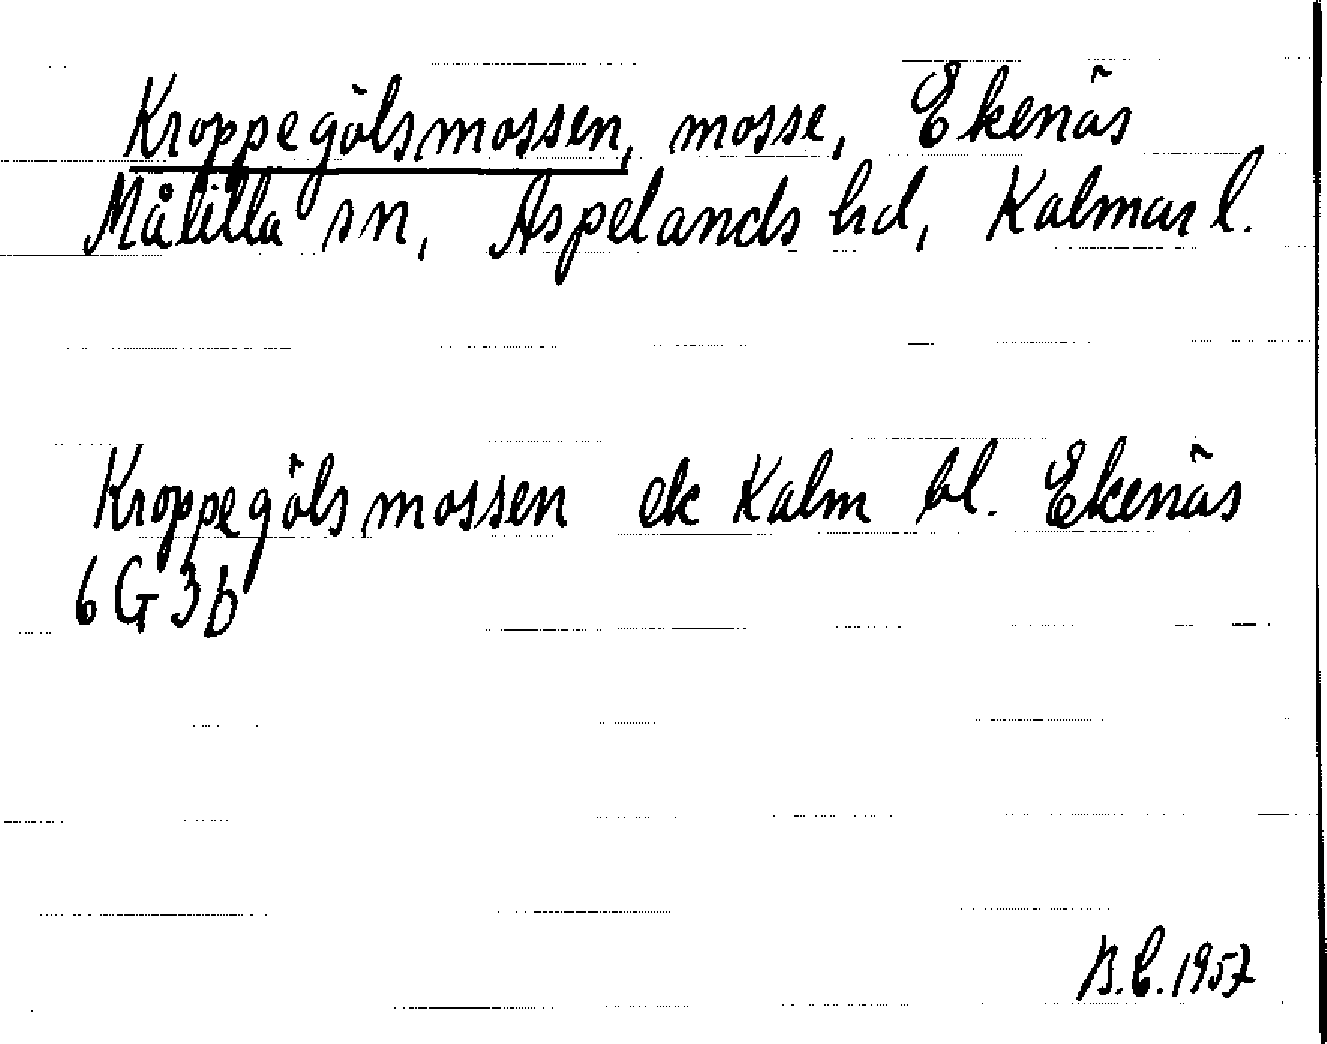 Kroppegölsmossen, mosse, Ekenäs
Målilla sn, Aspelands hd, Kalmar l.
Kroppegölsmossen ek Kalm bl. Ekenäs
6G3b
B.E.1957